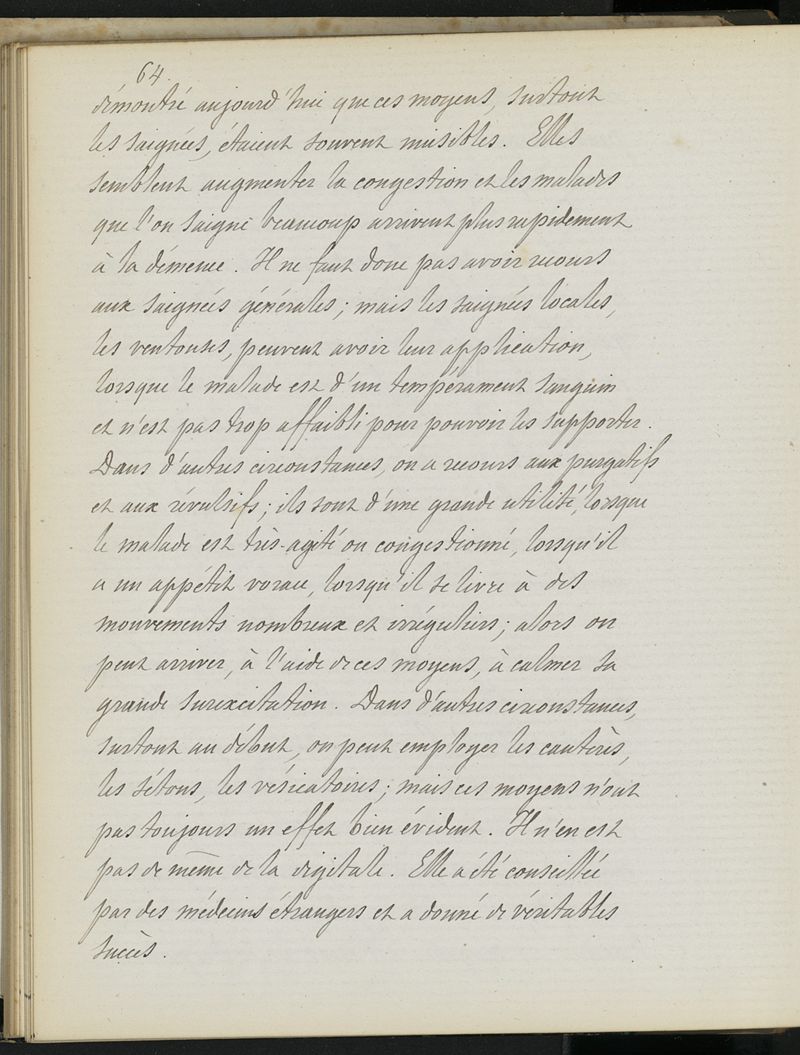 64.
démontré aujourd'hui que ces moyens, surtout
les saignées, étaient souvent nuisibles. Elles
semblent augmenter la congestion et les malades
que l'on saigne beaucoup arrivent plus rapidement
à la démence. Il ne faut donc pas avoir recours
aux saignées générales ; mais les saignées locales,
les ventouses, peuvent avoir leur application,
lorsque le malade est d'un tempérament sanguin
et n'est pas trop affaibli pour pouvoir les supporter.
Dans d'autres circonstances, on a recours aux purgatifs
et aux révulsifs ; ils sont d'une grande utilité, lorsque
le malade est très-agité ou congestionné, lorsqu'il
a un appétit vorace, lorsqu'il se livre à des
mouvements nombreux et irréguliers ; alors on
peut arriver, à l'aide de ces moyens, à calmer sa
grande surexcitation. Dans d'autres circonstances,
surtout au début, on peut employer les cautères,
les sétons, les vésicatoires ; mais ces moyens n'ont
pas toujours un effet bien évident. Il n'en est
pas de même de la digitale. Elle a été conseillée
par des médecins étrangers et a donné de véritables
succès.